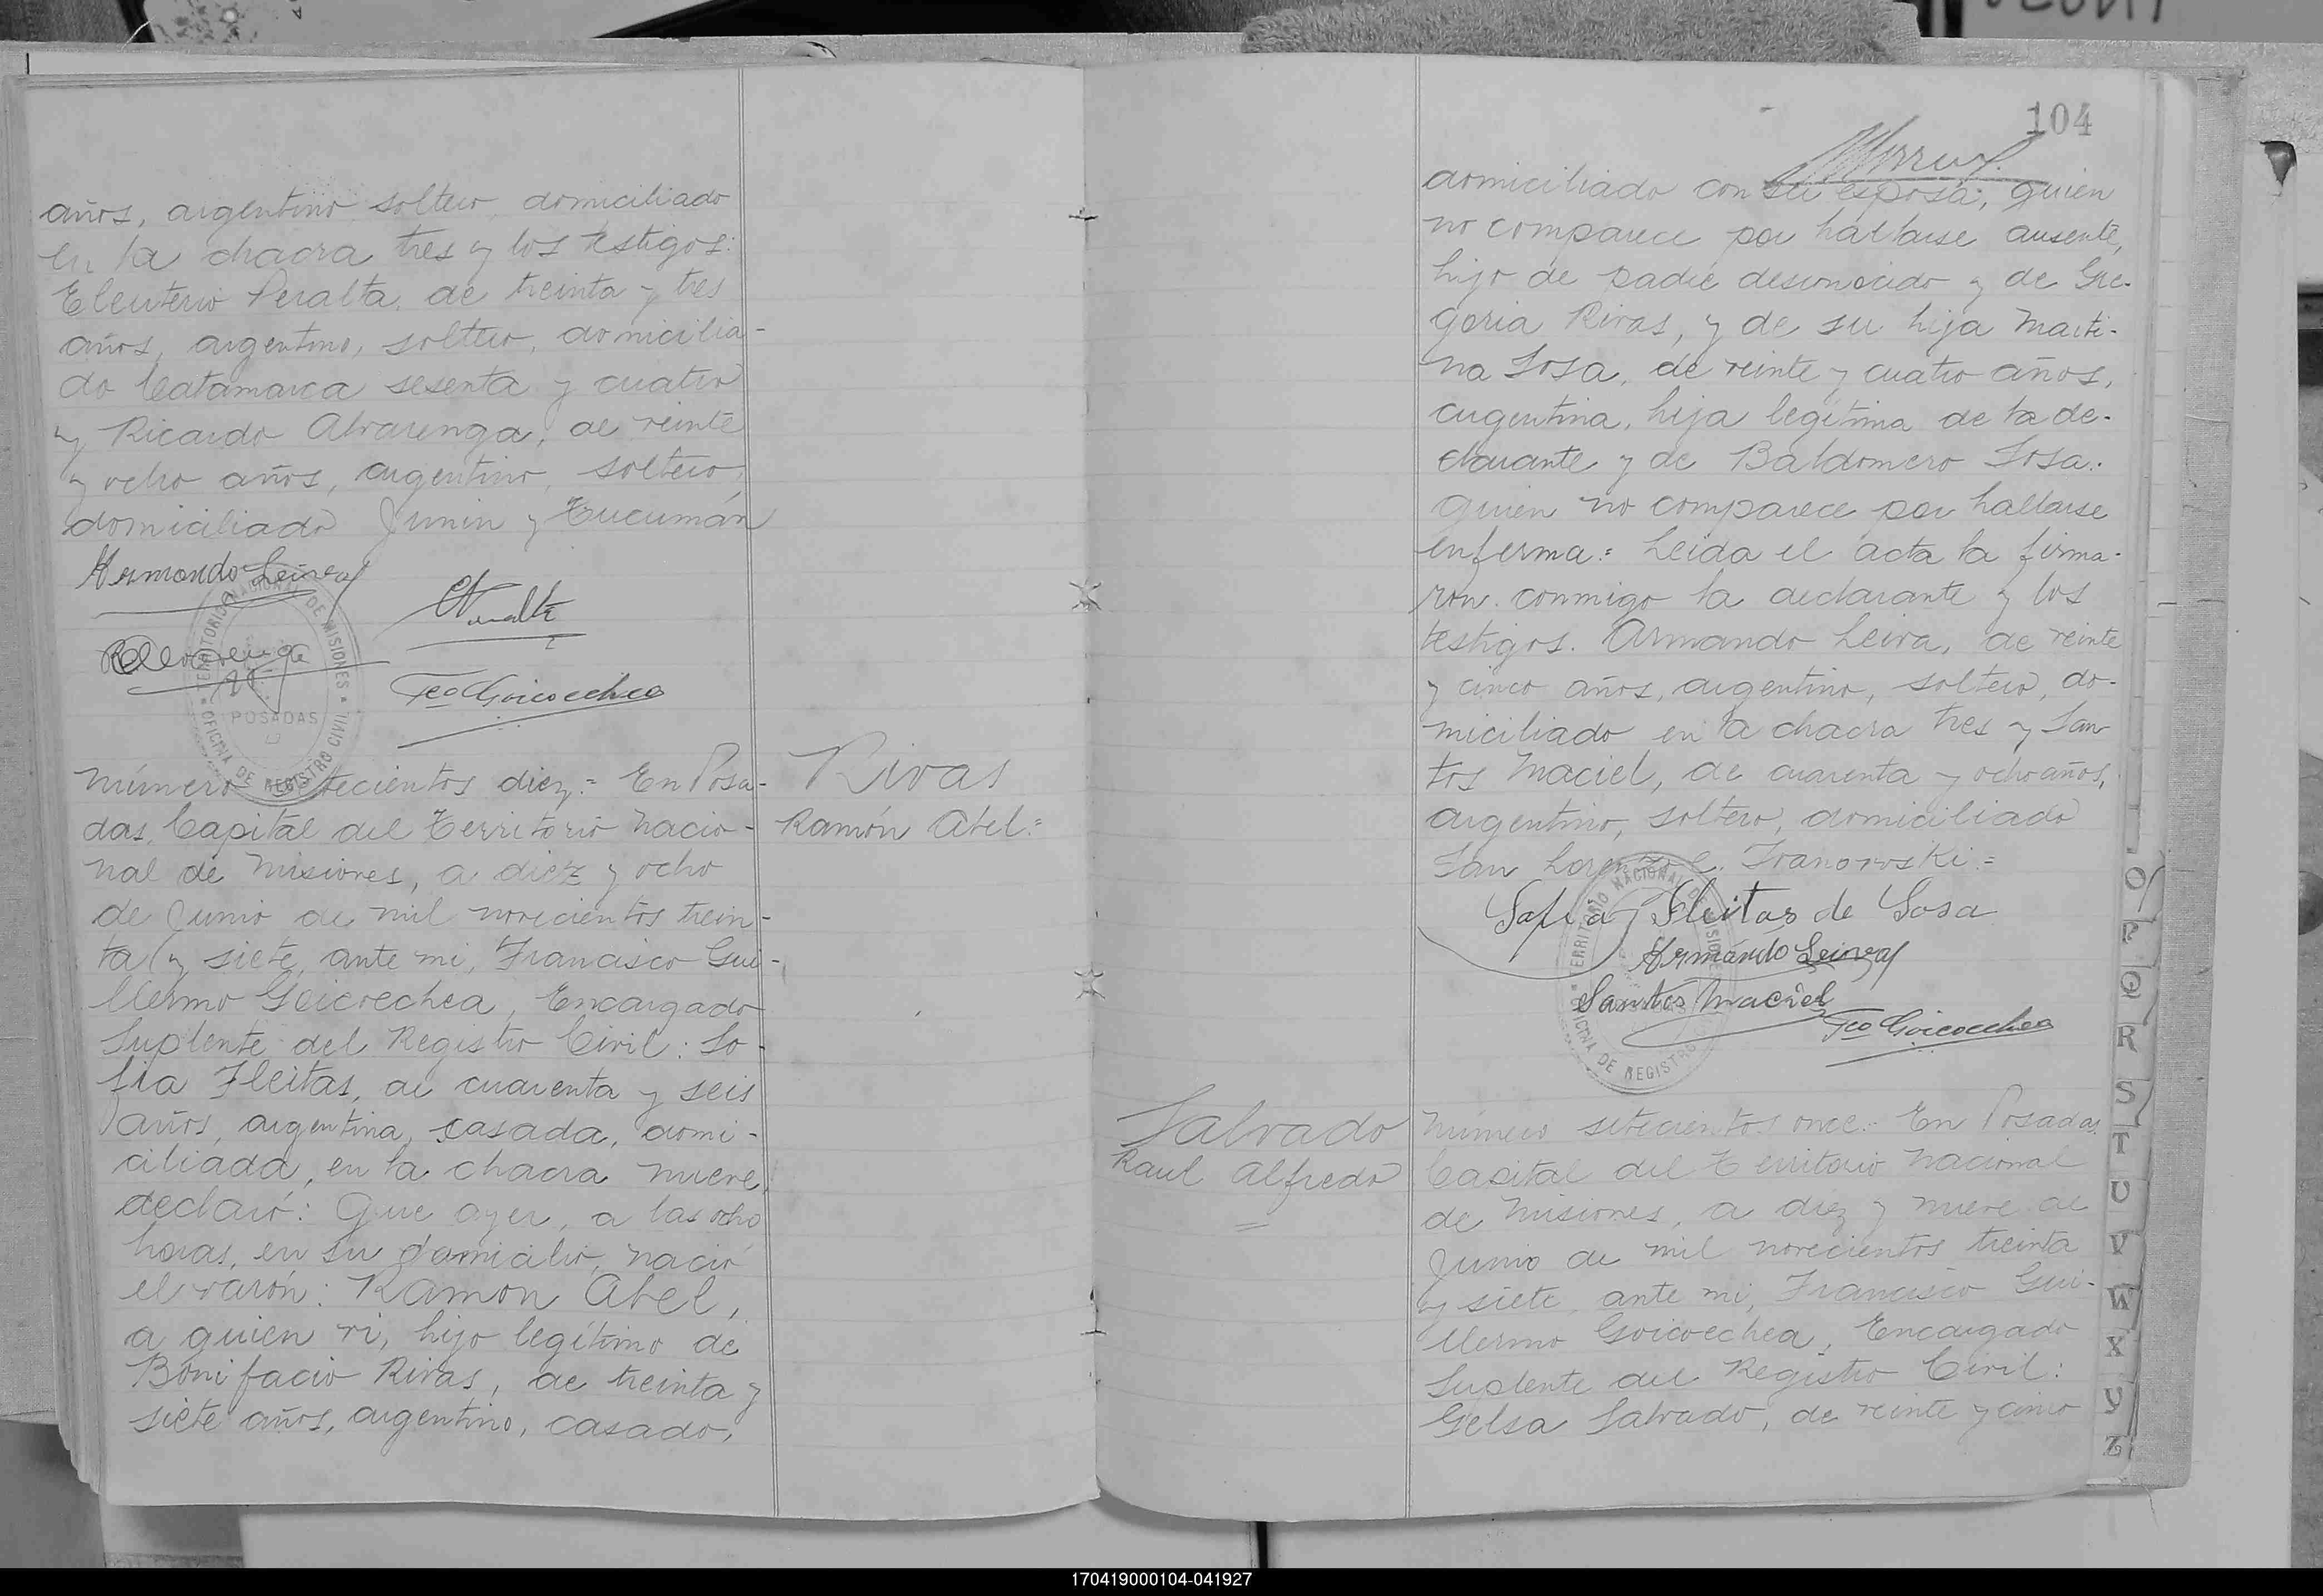 años, argentino soltero, domiciliado
en la chacra tres y los testigos:
Eleuterio Peralta, de treinta y tres
años, argentino, soltero, domicilia-
do Catamarca sesenta y cuatro
y Ricardo Alvarenga, de veinte
y ocho años, argentino, soltero,
domiciliado Junin y Tucumán
Armando Leiva
TERRITORIO NACIONAL DE MISIONES
POSADAS
OFICINA DE REGISTRO CIVIL
Fco Goicoechea
Número setecientos diez = En Posa-
das, Capital del Territorio Nacio-
nal de Misiones, a diez y ocho
de Junio de mil novecientos trein-
ta y siete, ante mi, Francisco Gui-
llermo Goicoechea, Encargado
Suplente del Registro Civil: So-
fia Fleitas, de cuarenta y seis
años, argentina, casada, domi-
ciliada, en la chacra nueve,
declaró: Que ayer, a las ocho
horas, en su domicilio, nació
el varón: Ramon Abel,
a quien vi, hijo legítimo de
Bonifacio Rivas, de treinta y
siete años, argentino, casado,
Rivas
Ramón Abel =
104
domiciliado con su esposa; quien
no comparece por hallarse ausente,
hijo de padre desconocido y de Gre-
goria Rivas, y de su hija Marti-
na Sosa, de veinte y cuatro años,
argentina, hija legítima de la de-
clarante y de Baldomero Sosa.
quien no comparece por hallarse
enferma = Leida el acta la firma-
ron conmigo la declarante y los
testigos. Armando Leiva, de veinte
y cinco años, argentino, soltero, do-
miciliado en la chacra tres y San
tos Maciel, de cuarenta y ocho años,
argentino, soltero, domiciliado
San Lorenzo e. Ivanovski =
Sofia Fleitas de Sosa
Armando Leiva
Santos Maciel
Fco Goicoechea
TERRITORIO NACIONAL DE MISIONES
OFICINA DE REGISTRO
Salvado
Raul Alfredo
=
Número setecientos once.- En Posadas
Capital del Territorio Nacional
de Misiones, a diez y nueve de
Junio de mil novecientos treinta
y siete, ante mi, Francisco Gui-
llermo Goicoechea, Encargado
Suplente del Registro Civil:
Gelsa Salvado, de veinte y cinco
O
P
Q
R
S
T
U
V
W
X
Y
Z
170419000104-041927